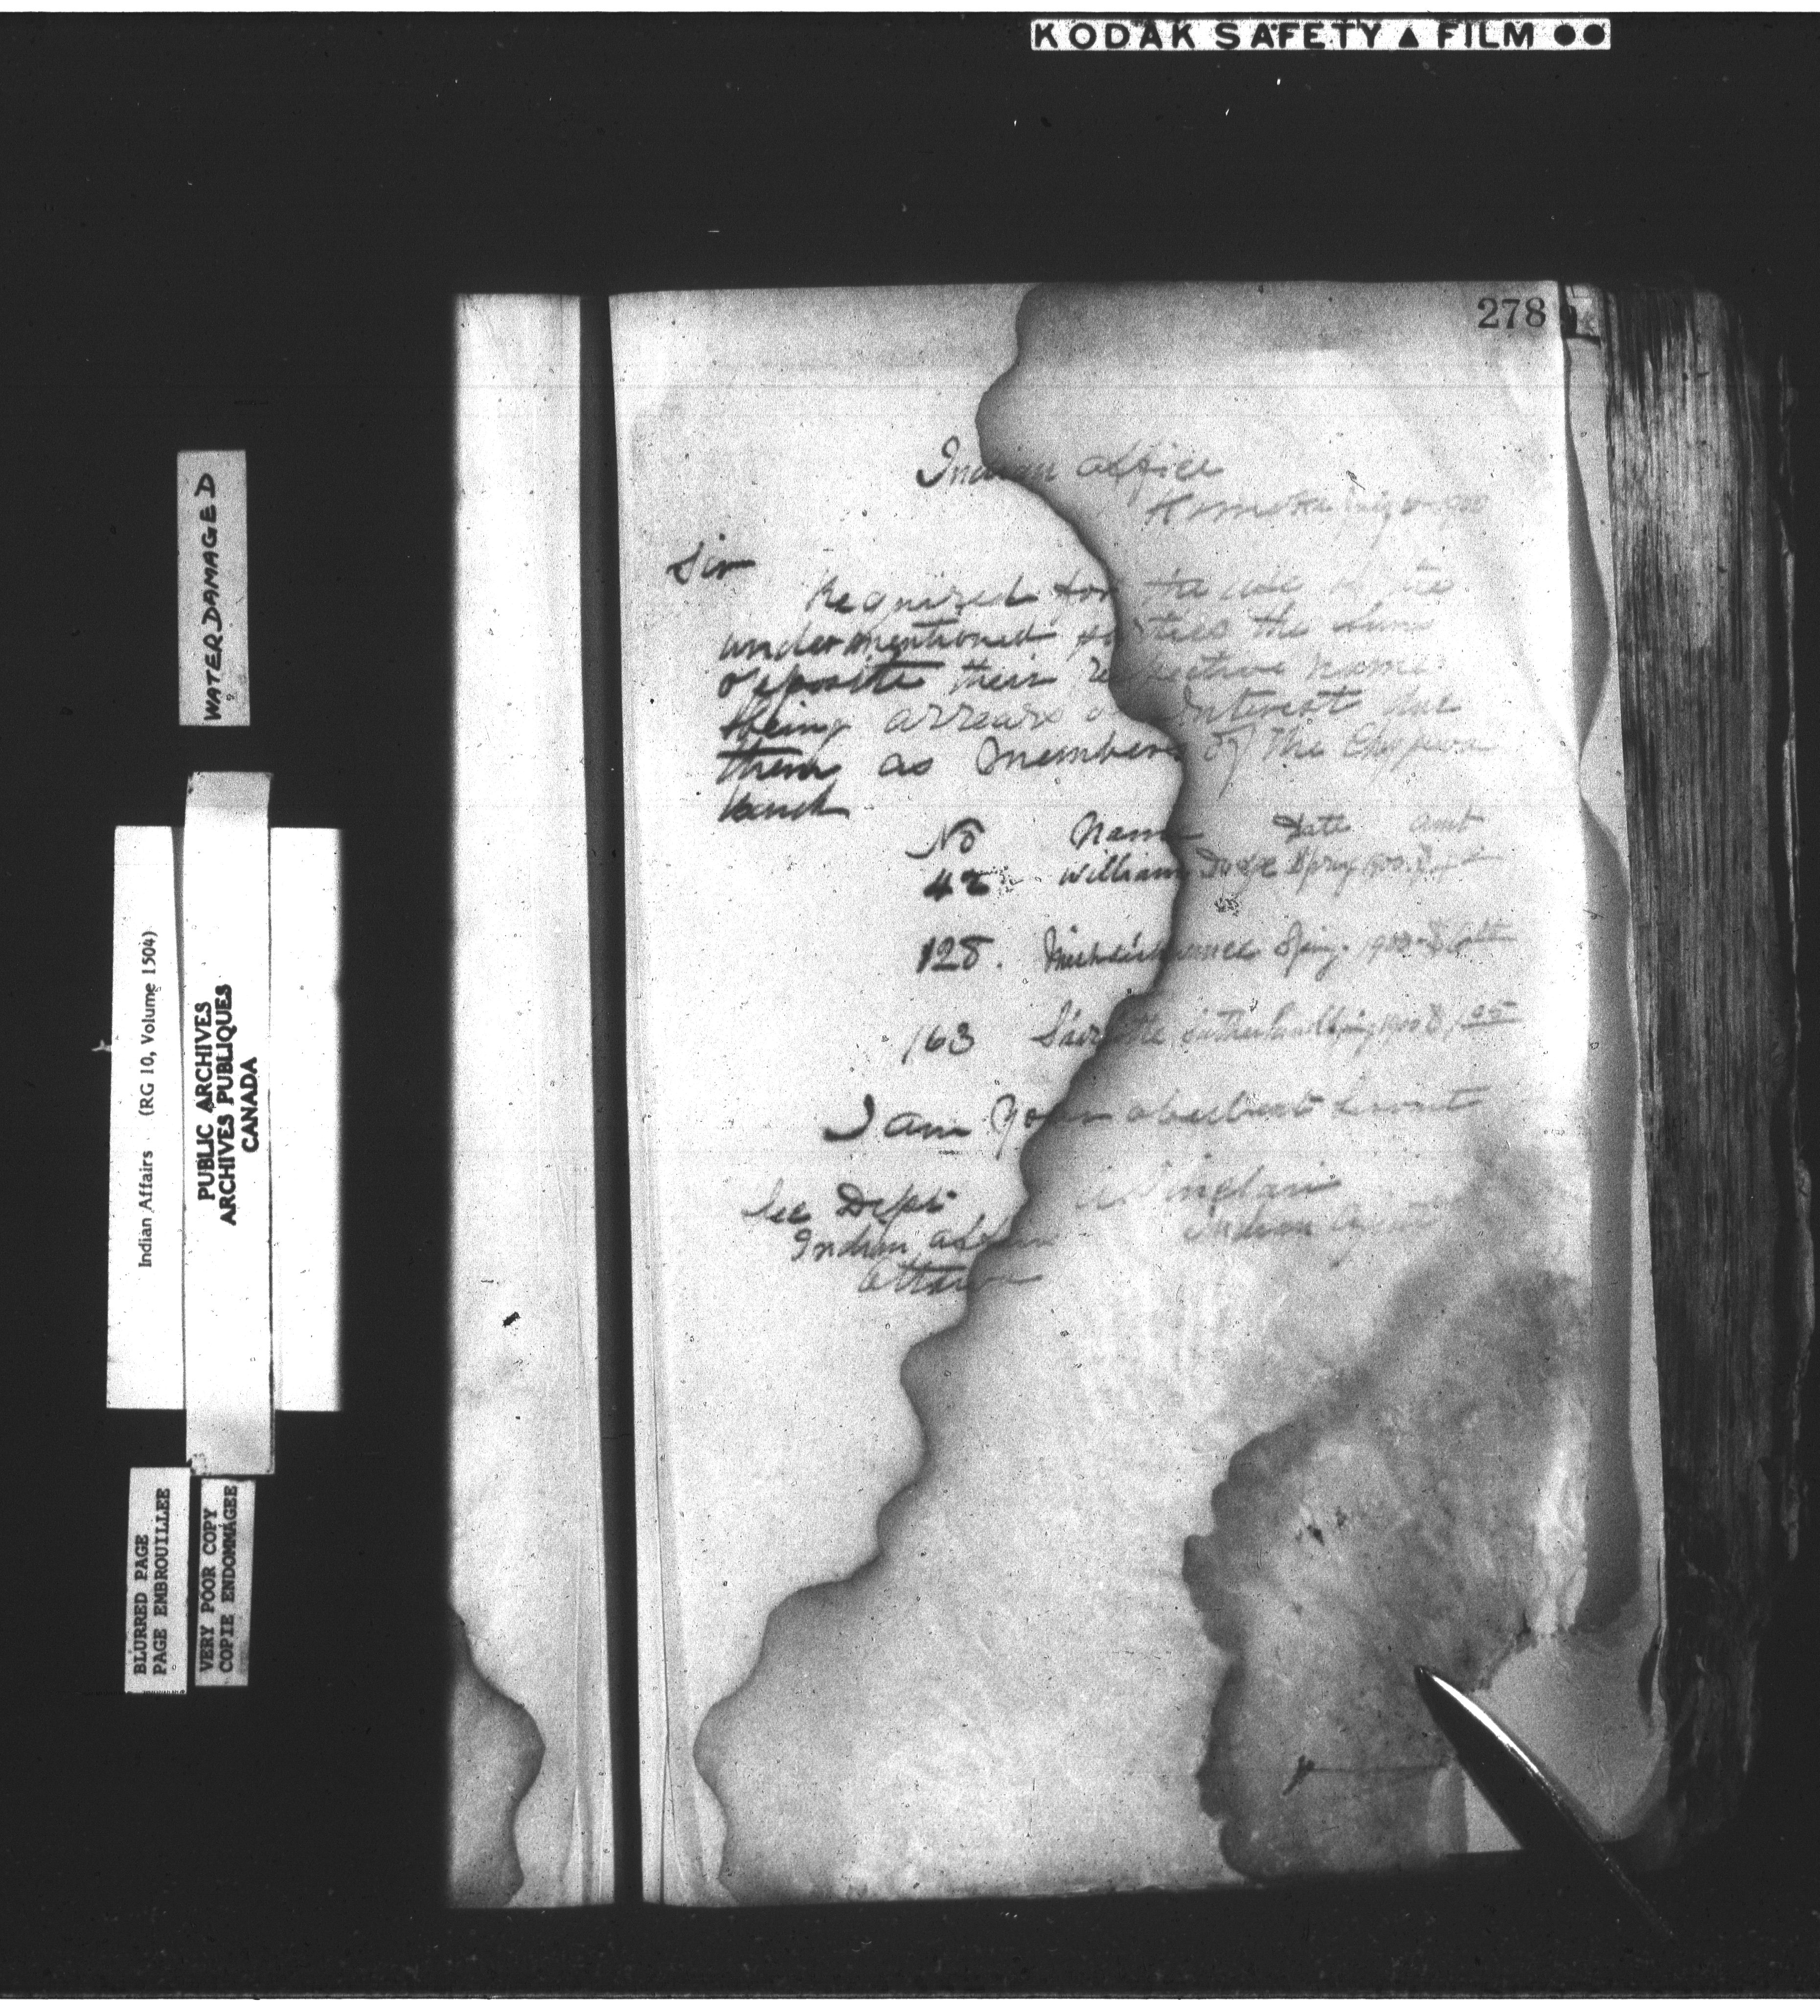 KODAK SAFETY ▲ FILM ●●
278
Indian Office
1900
Sir
Required for the use of the
undermentioned parties the sums
opposite their respective names
being arrears of interest due
them as members of the Chippewa
band
No Name Date Amt
42 William Dodge Spring 1900
128. Spring 1900
163 Sutherland Spring 1900 $1.05
I am your obedient servant
Indian Agent
See Dept
Indian Affairs
Ottawa
WATERDAMAGED
Indian Affairs (RG 10, Volume 1504)
PUBLIC ARCHIVES
ARCHIVES PUBLIQUES
CANADA
BLURRED PAGE
PAGE EMBROUILLEE
VERY POOR COPY
COPIE ENDOMMAGEE